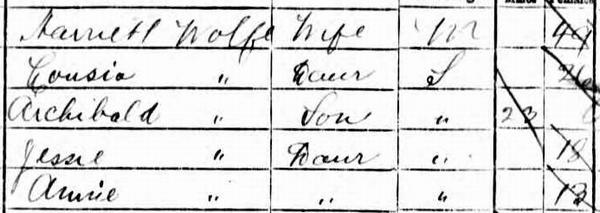 Harriett Wolfe Wife M 44
" Daur S
Archibald " Son " 23
Jessie " Daur " 18
Annie " " " 13